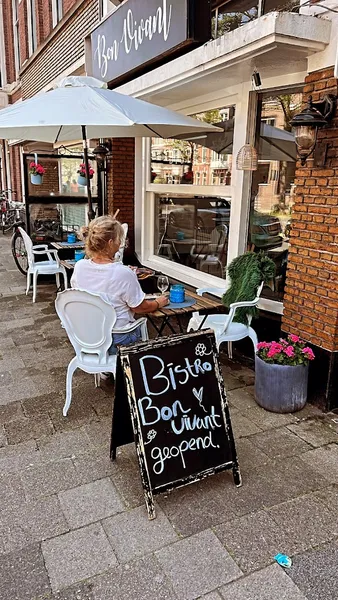 Bon Vivant
Bistro
Bon
Vivant
geopend.